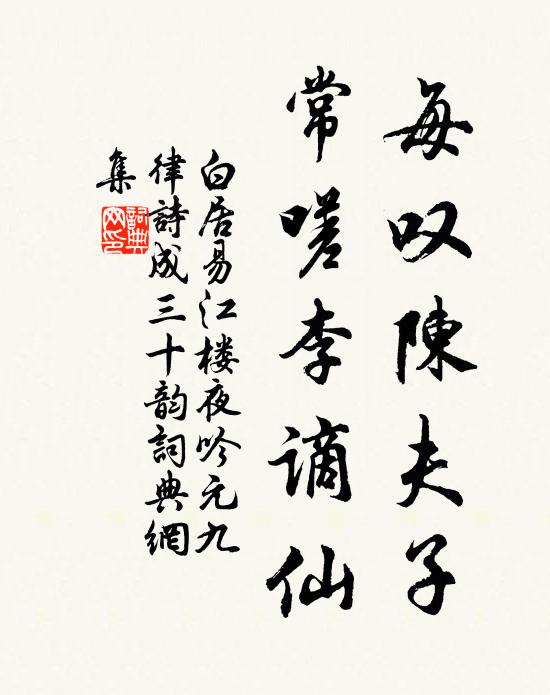 每叹陳夫子
常嗟李谪仙
白居易江楼夜吟元九
律詩成三十韵詞典網
集
詞典
网印